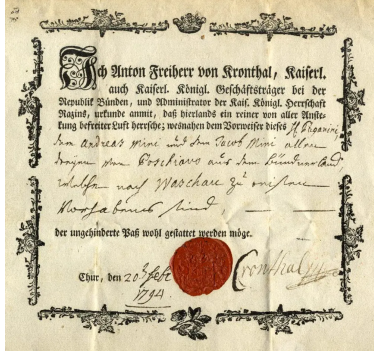 Ich Anton Freiherr von Kronthal, Kaiserl.
auch Kaiserl. Königl. Geschäftsträger bei der
Republik Bünden, und Administrator der Kais. Königl. Herrschaft
Razins, urkunde anmit, daß hierlands ein reiner von aller Anste-
kung befreiter Luft herrsche; wesnahen dem Vorweiser dieses
den Andreas Mini und den Jacob Mini allen
von Poschiavo aus dem Bündnerland
welche nach Waschau zu reisen
Vorhabens sind,
der ungehinderte Paß wohl gestattet werden möge.
Chur, den 20 Febr
1794.
Cronthal